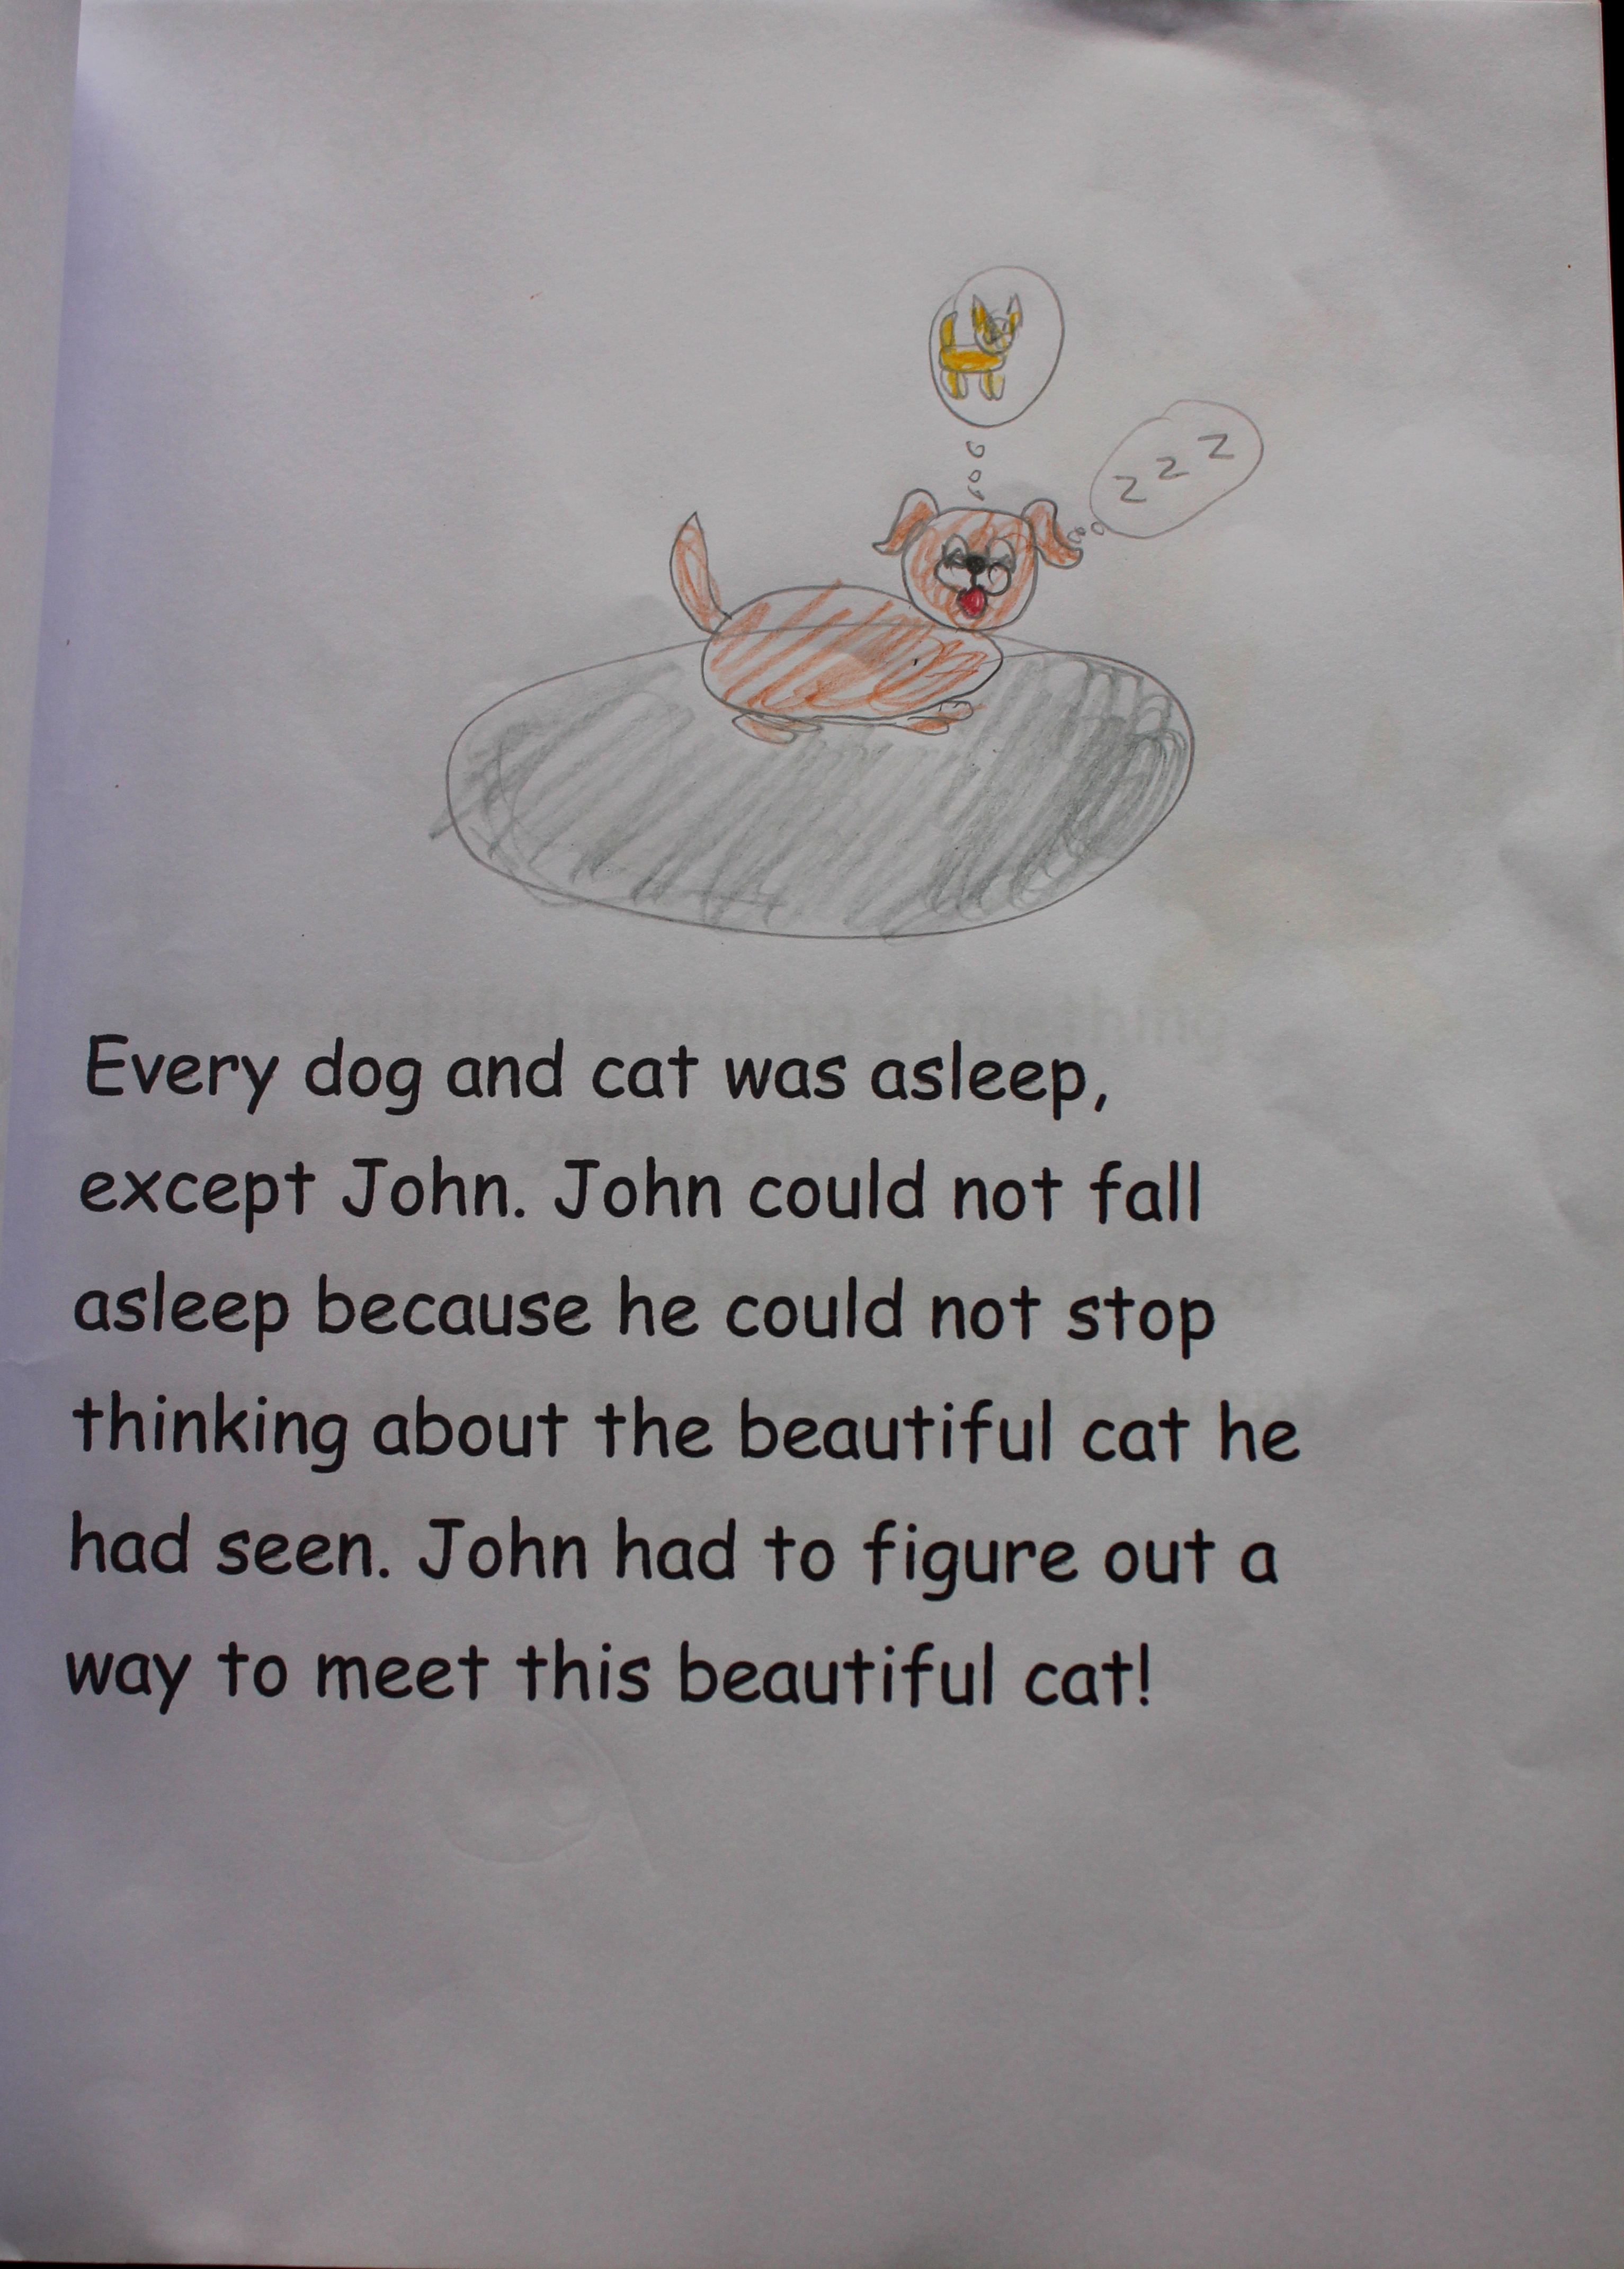 z z z
Every dog and cat was asleep,
except John. John could not fall
asleep because he could not stop
thinking about the beautiful cat he
had seen. John had to figure out a
way to meet this beautiful cat!